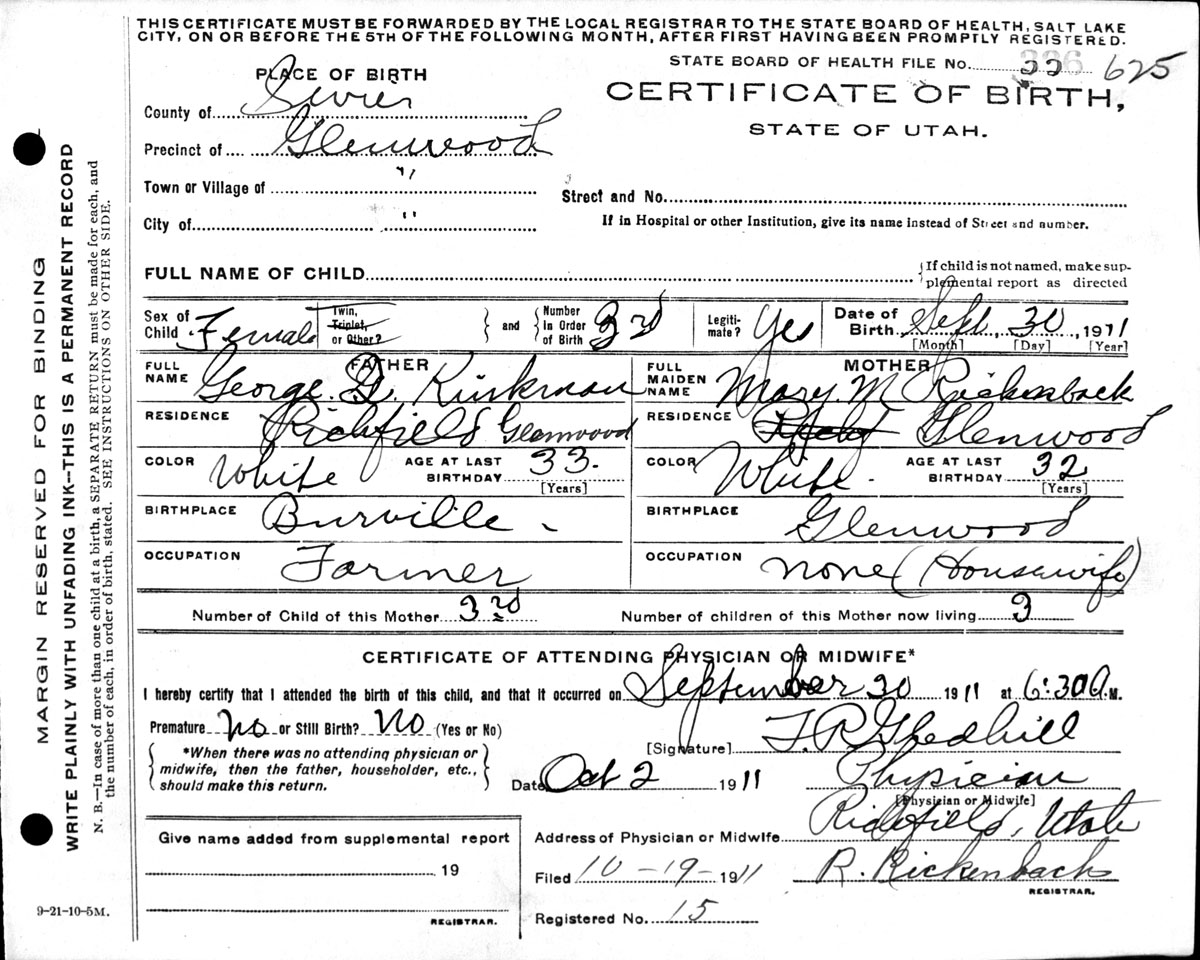 THIS CERTIFICATE MUST BE FORWARDED BY THE LOCAL REGISTRAR TO THE STATE BOARD OF HEALTH, SALT LAKE
CITY, ON OR BEFORE THE 5TH OF THE FOLLOWING MONTH, AFTER FIRST HAVING BEEN PROMPTLY REGISTERED.
STATE BOARD OF HEALTH FILE No. 625
PLACE OF BIRTH
CERTIFICATE OF BIRTH,
STATE OF UTAH.
County of Sevier
Precinct of Glenwood
Town or Village of "
Street and No.
City of "
If in Hospital or other Institution, give its name instead of Street and number.
FULL NAME OF CHILD
If child is not named, make sup-
plemental report as directed
Sex of Child Female
Twin, Triplet, or Other?
and
Number in Order of Birth 3rd
Legiti-mate? Yes
Date of Birth Sept. 30, 1911
[Month] [Day] [Year]
FATHER
FULL NAME George. D. Kirkman
RESIDENCE Richfield Glenwood
COLOR White AGE AT LAST BIRTHDAY 33.
[Years]
BIRTHPLACE Burville -
OCCUPATION Farmer
MOTHER
FULL MAIDEN NAME Mary. M Rickenback
RESIDENCE Glenwood
COLOR White. AGE AT LAST BIRTHDAY 32
[Years]
BIRTHPLACE Glenwood
OCCUPATION None (Housewife)
Number of Child of this Mother 3rd
Number of children of this Mother now living 3
CERTIFICATE OF ATTENDING PHYSICIAN OR MIDWIFE*
I hereby certify that I attended the birth of this child, and that it occurred on September 30 1911 at 6:30 A. M.
Premature No or Still Birth? No (Yes or No)
*When there was no attending physician or
midwife, then the father, householder, etc.,
should make this return.
[Signature] T. R. Gledhill
Date Oct 2 1911
Physician
[Physician or Midwife]
Address of Physician or Midwife Richfield, Utah
Give name added from supplemental report
19
REGISTRAR.
Filed 10-19-1911
R. Rickenback
REGISTRAR.
Registered No. 15
9-21-10-5M.
MARGIN RESERVED FOR BINDING
WRITE PLAINLY WITH UNFADING INK--THIS IS A PERMANENT RECORD
N. B.--In case of more than one child at a birth, a SEPARATE RETURN must be made for each, and
the number of each, in order of birth, stated. SEE INSTRUCTIONS ON OTHER SIDE.